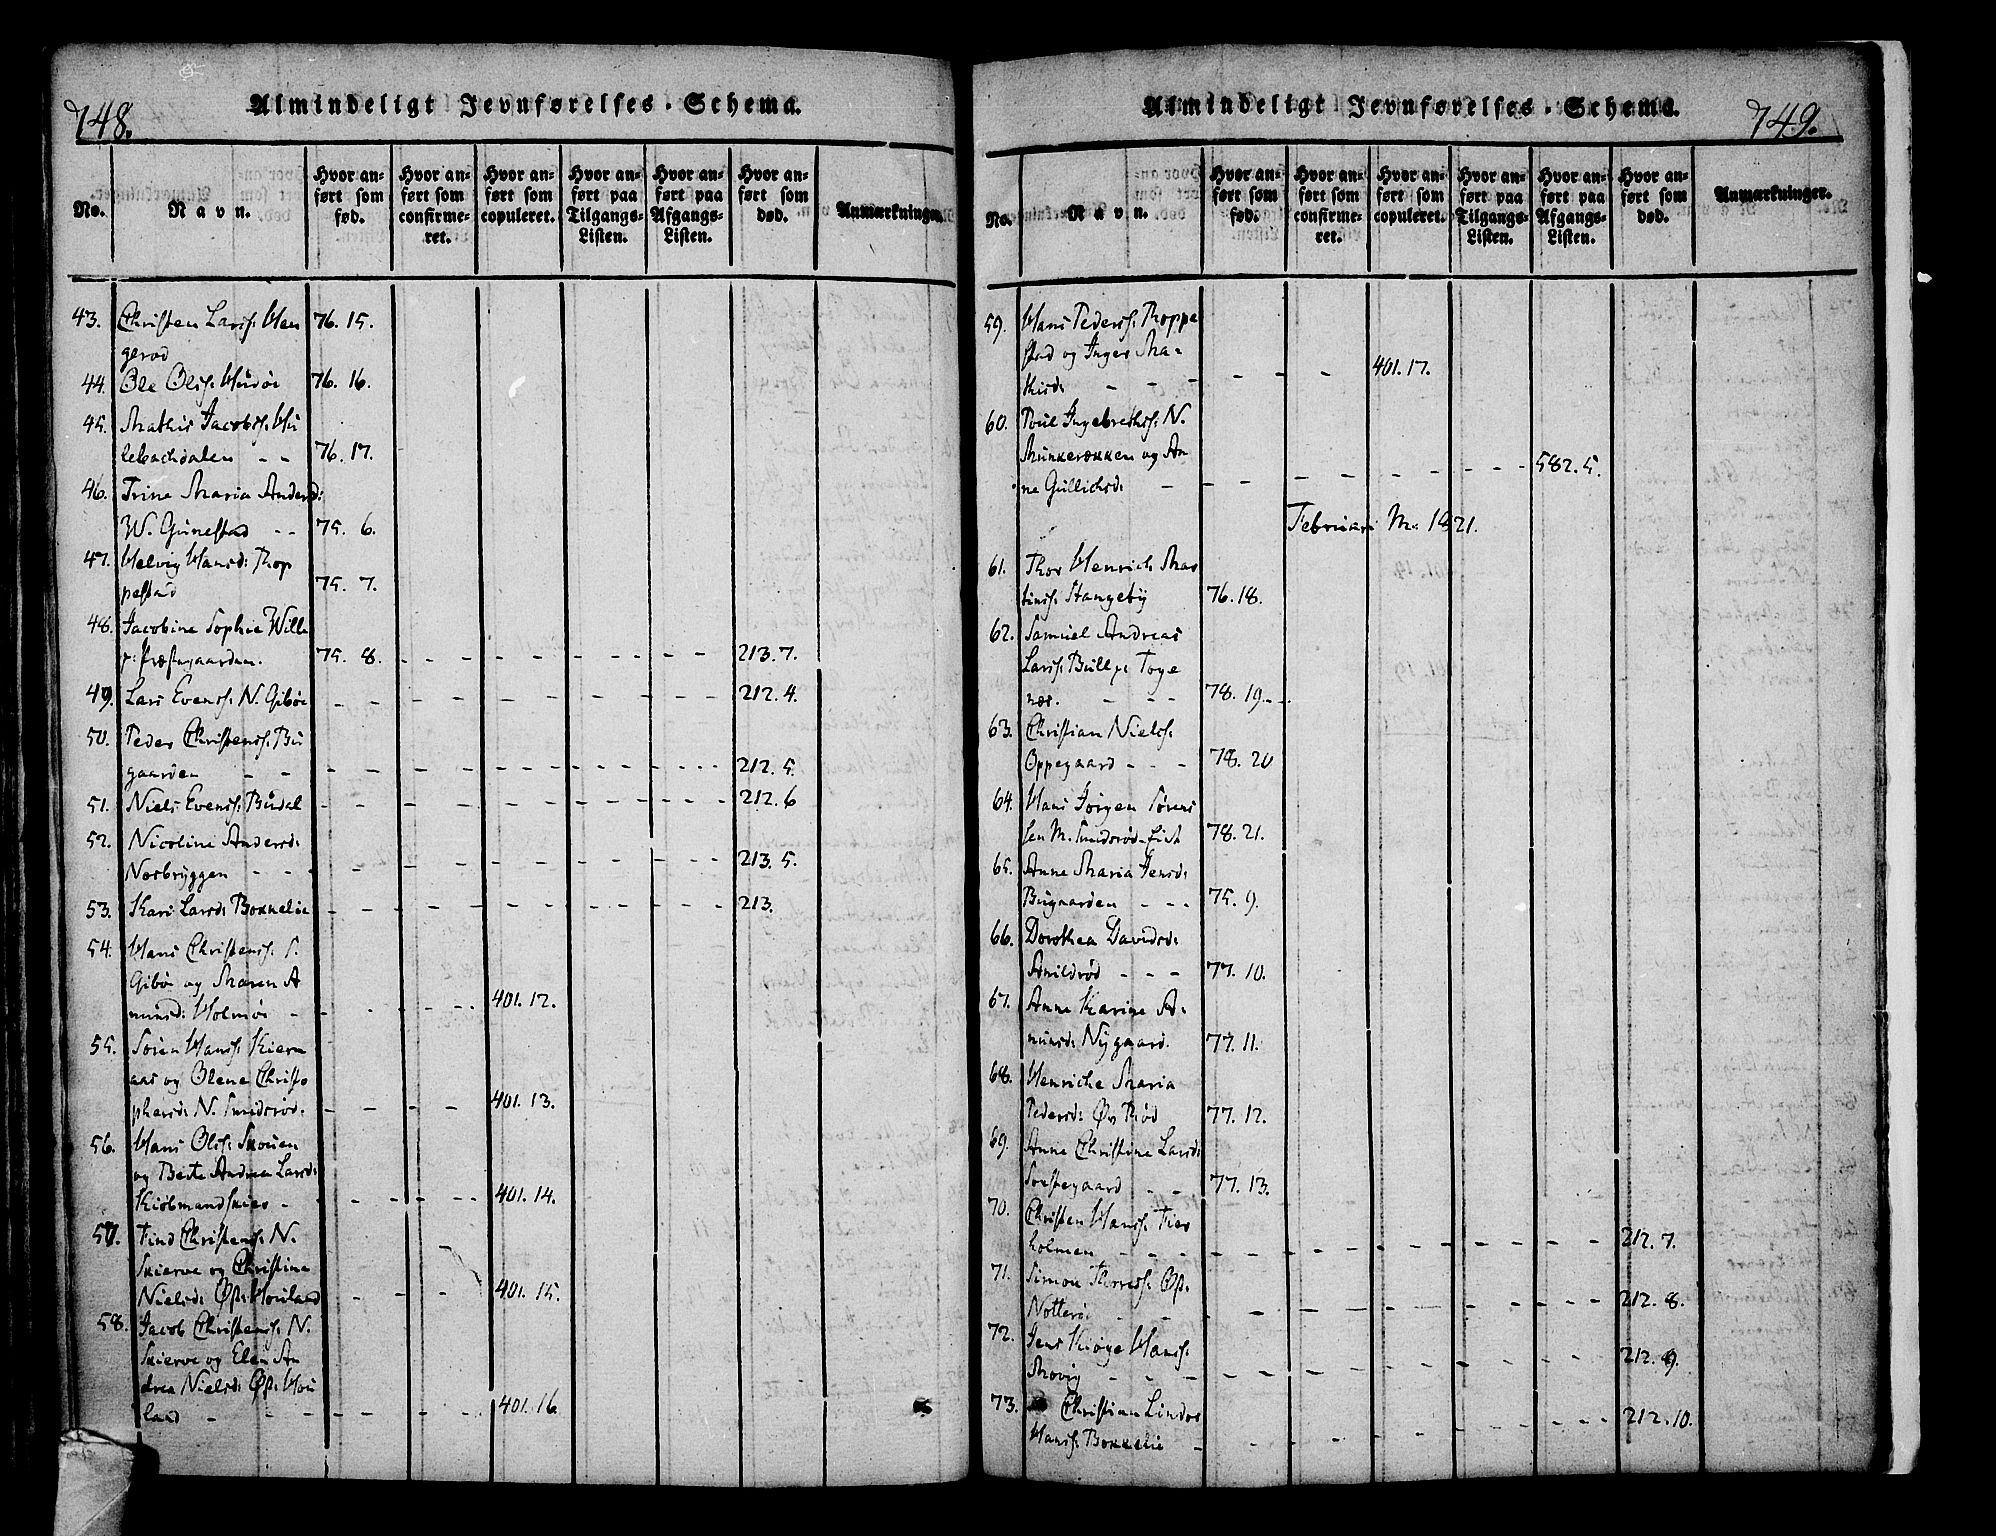 748.
Almindeligt Jevnførelses-Schema.
No.
Navn.
Hvor an-
ført som
fød.
Hvor an-
ført som
confirme-
ret.
Hvor an-
ført som
copuleret.
Hvor an-
ført paa
Tilgangs-
Listen.
Hvor an-
ført paa
Afgangs-
Listen.
Hvor an-
ført som
død.
Anmærkninger.
43. Christen Larss: Hen
gerød 76. 15.
44. Ole Olss: Husøe 76. 16.
45. Mathis Jacobss: Hu
lebachdalen - - 76. 17.
46. Trine Maria Andersd:
W. Gunestad - - 75. 6.
47. Helvig Hansd: Rop
pestad 75. 7.
48. Jacobine Sophie Wille
p: Præstegaarden. 75. 8. - - - 213. 7.
49. Lars Evenss: N. Gibøe - - - 212. 4.
50. Peder Christenss: Bu
gaarden - - - 212. 5.
51. Niels Evenss: Budal - - - 212. 6
52. Nicoline Andersd:
Nesbryggen - - - 213. 5.
53. Kari Larsd: Bekkelie - - - 213.
54. Hans Christenss: S.
Gibø og Maren A
munsd: Holmøe - - - 401. 12.
55. Søren Hanss: Kiern
aas og Olene Christo
phersd: N. Smidsrød. - - - 401. 13.
56. Hans Olss: Skouen
og Berte Andrea Larsd:
Kiøbmandskiær - - - 401. 14.
57. Find Christenss: N.
Skierve og Christine
Nielsd: Øst: Houland - - - 401. 15.
58. Jacob Christenss: N.
Skierve og Elen An
drea Nielsd: Øst: Hou
land - - - 401. 16
749.
Almindeligt Jevnførelses-Schema.
No.
Navn.
Hvor an-
ført som
fød.
Hvor an-
ført som
confirme-
ret.
Hvor an-
ført som
copuleret.
Hvor an-
ført paa
Tilgangs-
Listen.
Hvor an-
ført paa
Afgangs-
Listen.
Hvor an-
ført som
død.
Anmærkninger.
59. Hans Pederss: Roppe
stad og Inger Ma-
thisd: - - - 401. 17.
60. Poul Ingebrethss: N.
Munkerekken og An
ne Gullichsd: - - - 582. 5.
Februari M: 1821.
61. Thor Henrich Mar
tinss: Stangeby 76. 18.
62. Samuel Andreas
Larss: Bull p: Toye
nes. - - - 78. 19. - -
63. Christian Nielss:
Oppegaard - - - 78. 20
64. Hans Jørgen Sørens
sen M. Smidsrød-Eie 78. 21.
65. Anne Maria Jensd:
Bugaarden - - - 75. 9.
66. Dorothea Davidsd:
- - - 77. 10.
67. Anne Karine A-
munsd: Nygaard. 77. 11.
68. Henriche Maria
Pedersd: Øv: Rød 77. 12.
69. Anne Christine Larsd:
- - 77. 13.
70. Christen Hanss: Fier
holmen - - - 212. 7.
71. Simon Øst:
Nøtterø. - - - 212. 8.
72. Jens Kiøge Hanss:
- - - 212. 9.
73. Christian Lindor
Hanss: Bekkelie - - - 212. 10.